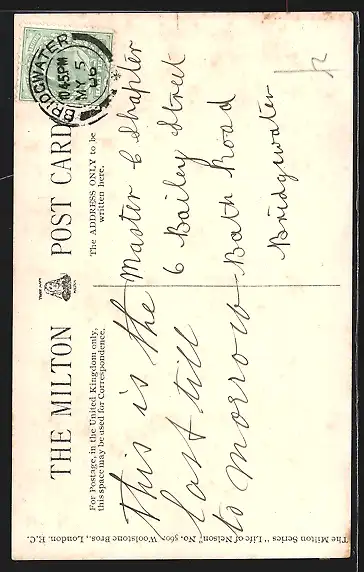 THE MILTON POST CARD
For Postage, in the United Kingdom only,
this space may be used for Correspondence.
The ADDRESS ONLY to be
written here.
This is the
last till
to morrow
Master C Shapter
6 Bailey Street
Bath Road
Bridgwater
BRIDGWATER
10.45PM
MY 5
The Milton Series "Life of Nelson" No. 560. Woolstone Bros., London. E.C.